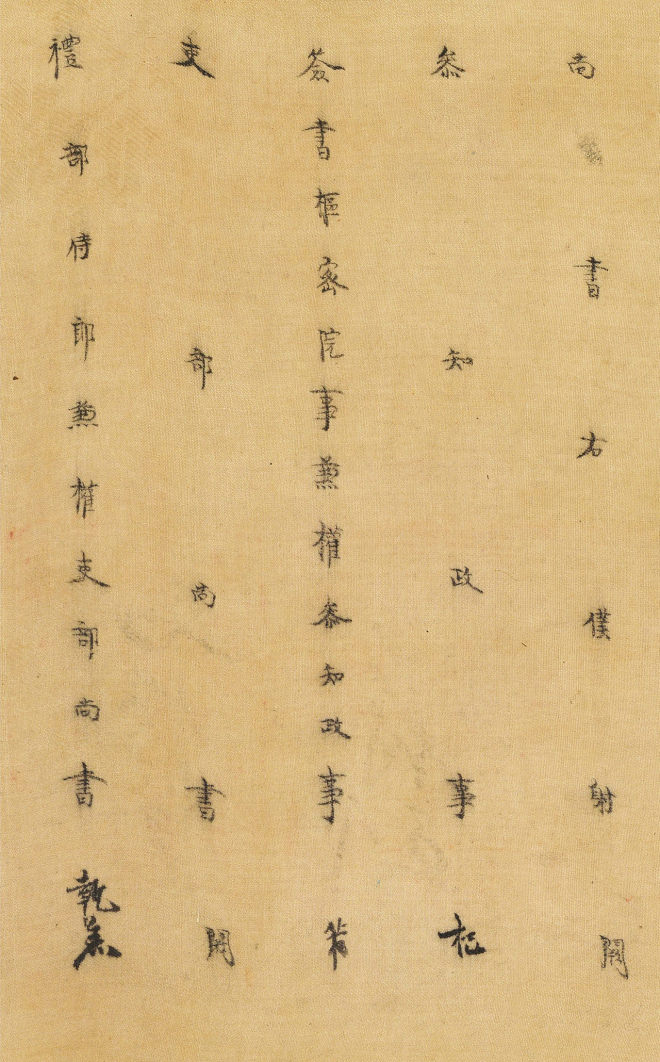 尚書右僕射闕
叅知政事杞
簽書樞密院事兼權叅知政事芾
吏部尚書闕
禮部侍郎兼權吏部尚書執羔